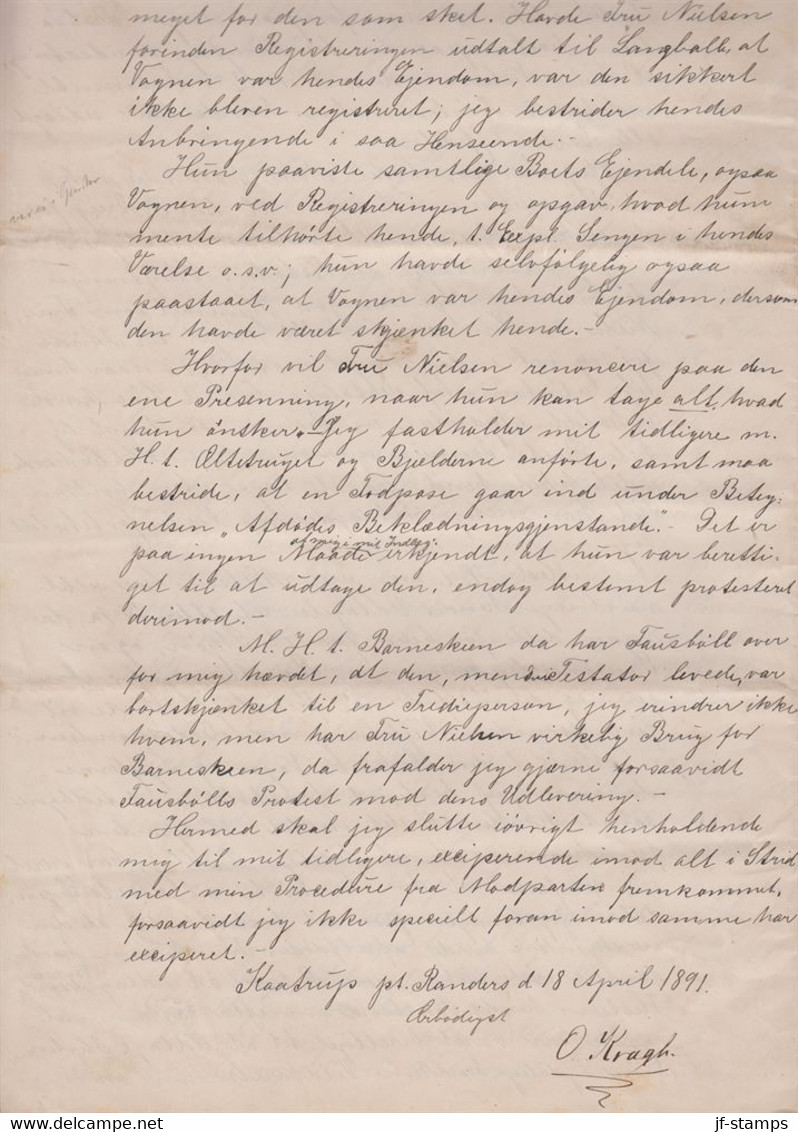 meget for den som sket. Havde Fru Nielsen
forinden Registreringen udtalt til Langballe, at
Vognen var hendes Ejendom, var den sikkert
ikke bleven registreret; jeg bestrider hendes
Anbringende i saa Henseende.-
Hun paaviste samtlige Boets Ejendele, ogsaa
Vognen, ved Registreringen og opgav, hvad hun
mente tilhørte hende, t. Expl. Sengen i hendes
Værelse o.s.v.; hun havde selvfølgelig ogsaa
paastaaet, at Vognen var hendes Ejendom, dersom
den havde været skjænket hende.-
Hvorfor vil Fru Nielsen renoncere paa den
ene Presenning, naar hun kan tage alt, hvad
hun ønsker.- Jeg fastholder mit tidligere m.
H. t. Æltetruget og Bjælderne anførte, samt maa
bestride, at en Fodpose gaar ind under Beteg-
nelsen "Afdødes Beklædningsgjenstande".- Det er
af mig i mit Indlæg
paa ingen Maade erkjendt, at hun var beretti-
get til at udtage den, endog bestemt protesteret
derimod.-
M. H. t. Barneskeen da har Fausbøll over
for mig hævdet, at den, mens Testator levede, var
bortskjænket til en Trediеperson, jeg erindrer ikke
hvem, men har Fru Nielsen virkelig Brug for
Barneskeen, da frafalder jeg gjærne forsaavidt
Fausbølls Protest mod dens Udlevering.-
Hermed skal jeg slutte iøvrigt henholdende
mig til mit tidligere, exciperende imod alt i Strid
med min Procedure fra Modparten fremkommet,
forsaavidt jeg ikke specielt foran imod samme har
exciperet.-
Kaatrup pt. Randers d 18 April 1891.
Ærbødigst
O. Kragh.
jf-stamps